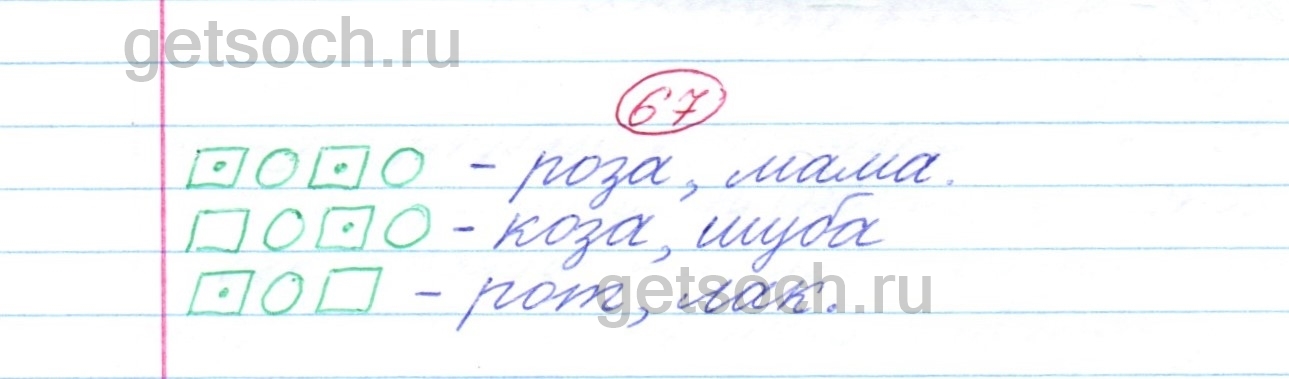 getsoch.ru
67
- роза, мама.
- коза, шуба
- рот, лак.
getsoch.ru